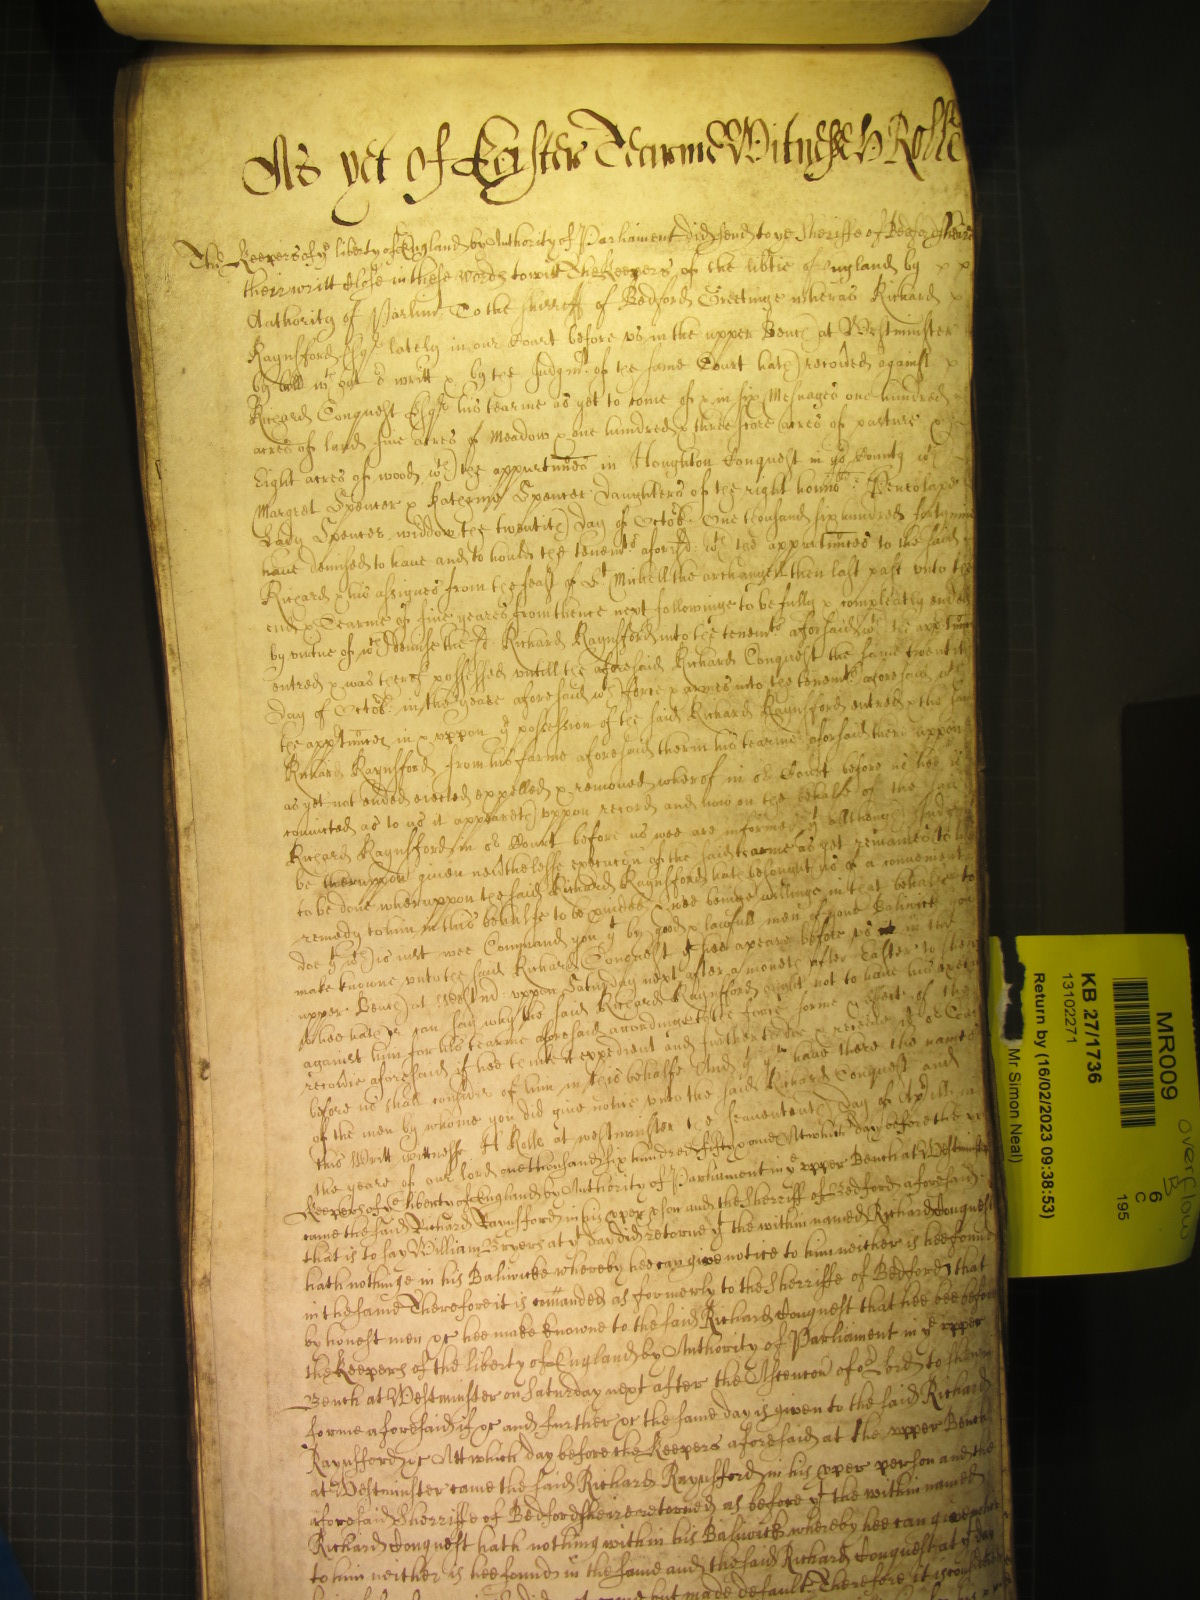 As yet of Easter Tearme Witnesse H Rolle
The Keepers of ye liberty of England by Authority of Parliament did send to ye Sheriffe of Bedfordsheire
their writt close in these words to witt The Keepers of the libtie of England by x x
Authority of Parliamt. To the sherriff of Bedford Greetinge wheras Richard x
Raynsford Esqr lately in our Court before us in the upper Bench at Westminster
by bill wthout writt & by the Judgmt. of the same Court hath recovered against x
Richard Conquest Esqr his tearme as yet to come of & in six Mesuages one hundred
acres of land five acres of Meadow & one hundred & three score acres of pasture &
Eight acres of wood wth the appurtunces in Houghton Conquest in yor County wch
Margret Spencer & Katherine Spencer daughters of the right honoble: Penelope
Lady Spencer widdow the twentith day of Octob: One thousand six hundred forty nine
have demised to have and to hould the tenemts aforesd: wth the appurtunces to the said
Richard & his assignes from the feast of St Michell the archangell then last past unto the
end & Tearme of five yeares from thence next followinge to be fully & compleatly ended
by virtue of wch demise the sd Richard Raynsford into the tenemts aforesaid wth the apptunces
entred & was therof possessed untill the aforesaid Richard Conquest the same twentith
day of Octob: in the yeare aforesaid wth force & armes into the tenemts aforesaid wth
the apptunces in & uppon ye possession of the said Richard Raynsford entred & the said
Richard Raynsford from his farme aforesaid therin his tearme aforsaid then
as yet not ended eiected expelled & removed wherof in or Court before us hee is
convicted as to us it appeareth uppon record and now on the behalfe of the said
Richard Raynsford in or Court before us wee are informed yt allthough Judgmt
be theruppon given neverthelesse execution of the said tearme as yet remaines to
to be done wheruppon the said Richard Raynsford hath besought us of a convenient
remedy to him in this behalfe to be provided & wee beinge willinge in that behalfe to
doe yt wch is iust wee Command you yt by good & lawfull men of your Baliwick you
make knowne unto the said Richard Conquest yt hee apeare before us in the
upper Bench at Westmr: uppon Saturday next after a moneth after Easter to shew
if hee hath or can say why the said Richard Raynsford ought not to have his execution
against him for his tearme aforesaid accordinge to the force forme & effect of the
recovrie aforesaid if hee thinke it expedient and further to doe & receive wt or Court
before us shall consider of him in this behalfe And yt you have there the names
of the men by whome you did give notice unto the said Richard Conquest and
this Writt wittnesse H Rolle at westminster the seavententh day of Aprill in
the yeare of our lord one thousand six hundred fifty & one Att which day before the
Keepers of ye liberty of England by Authority of Parliament in ye upper Bench at Westminster
came the said Richard Raynsford in his pper pson and the Sherriff of Bedford aforesaid
that is to say William Bryers at yt day did retorne yt the within named Richard Conquest
hath nothinge in his Baliwicke whereby hee can give notice to him neither is hee found
in the same Therefore it is comanded as formerly to the Sherriffe of Bedford that
by honest men &c hee make knowne to the said Richard Conquest that hee bee before
the Keepers of the liberty of England by Authority of Parliament in ye upper
Bench at Westminster on Saturday next after the Ascencon of or Lord to shew in
forme aforesaid if &c and further &c the same day is given to the said Richard
Raynsford &c Att which day before the Keepers aforesaid at the upper Bench
at Westminster came the said Richard Raynsford in his pper person and the
aforesaid Sherriffe of Bedfordsheire retorned as before yt the within named
Richard Conquest hath nothing within his Baliwick whereby hee can give notice
to him neither is hee found in the same and the said Richard Conquest at yt day
came but made default Therefore it is considered
MR009
Overflow
B
6
C
195
KB 27/1736
13102271
Return by (16/02/2023 09:38:53)
Mr Simon Neal)